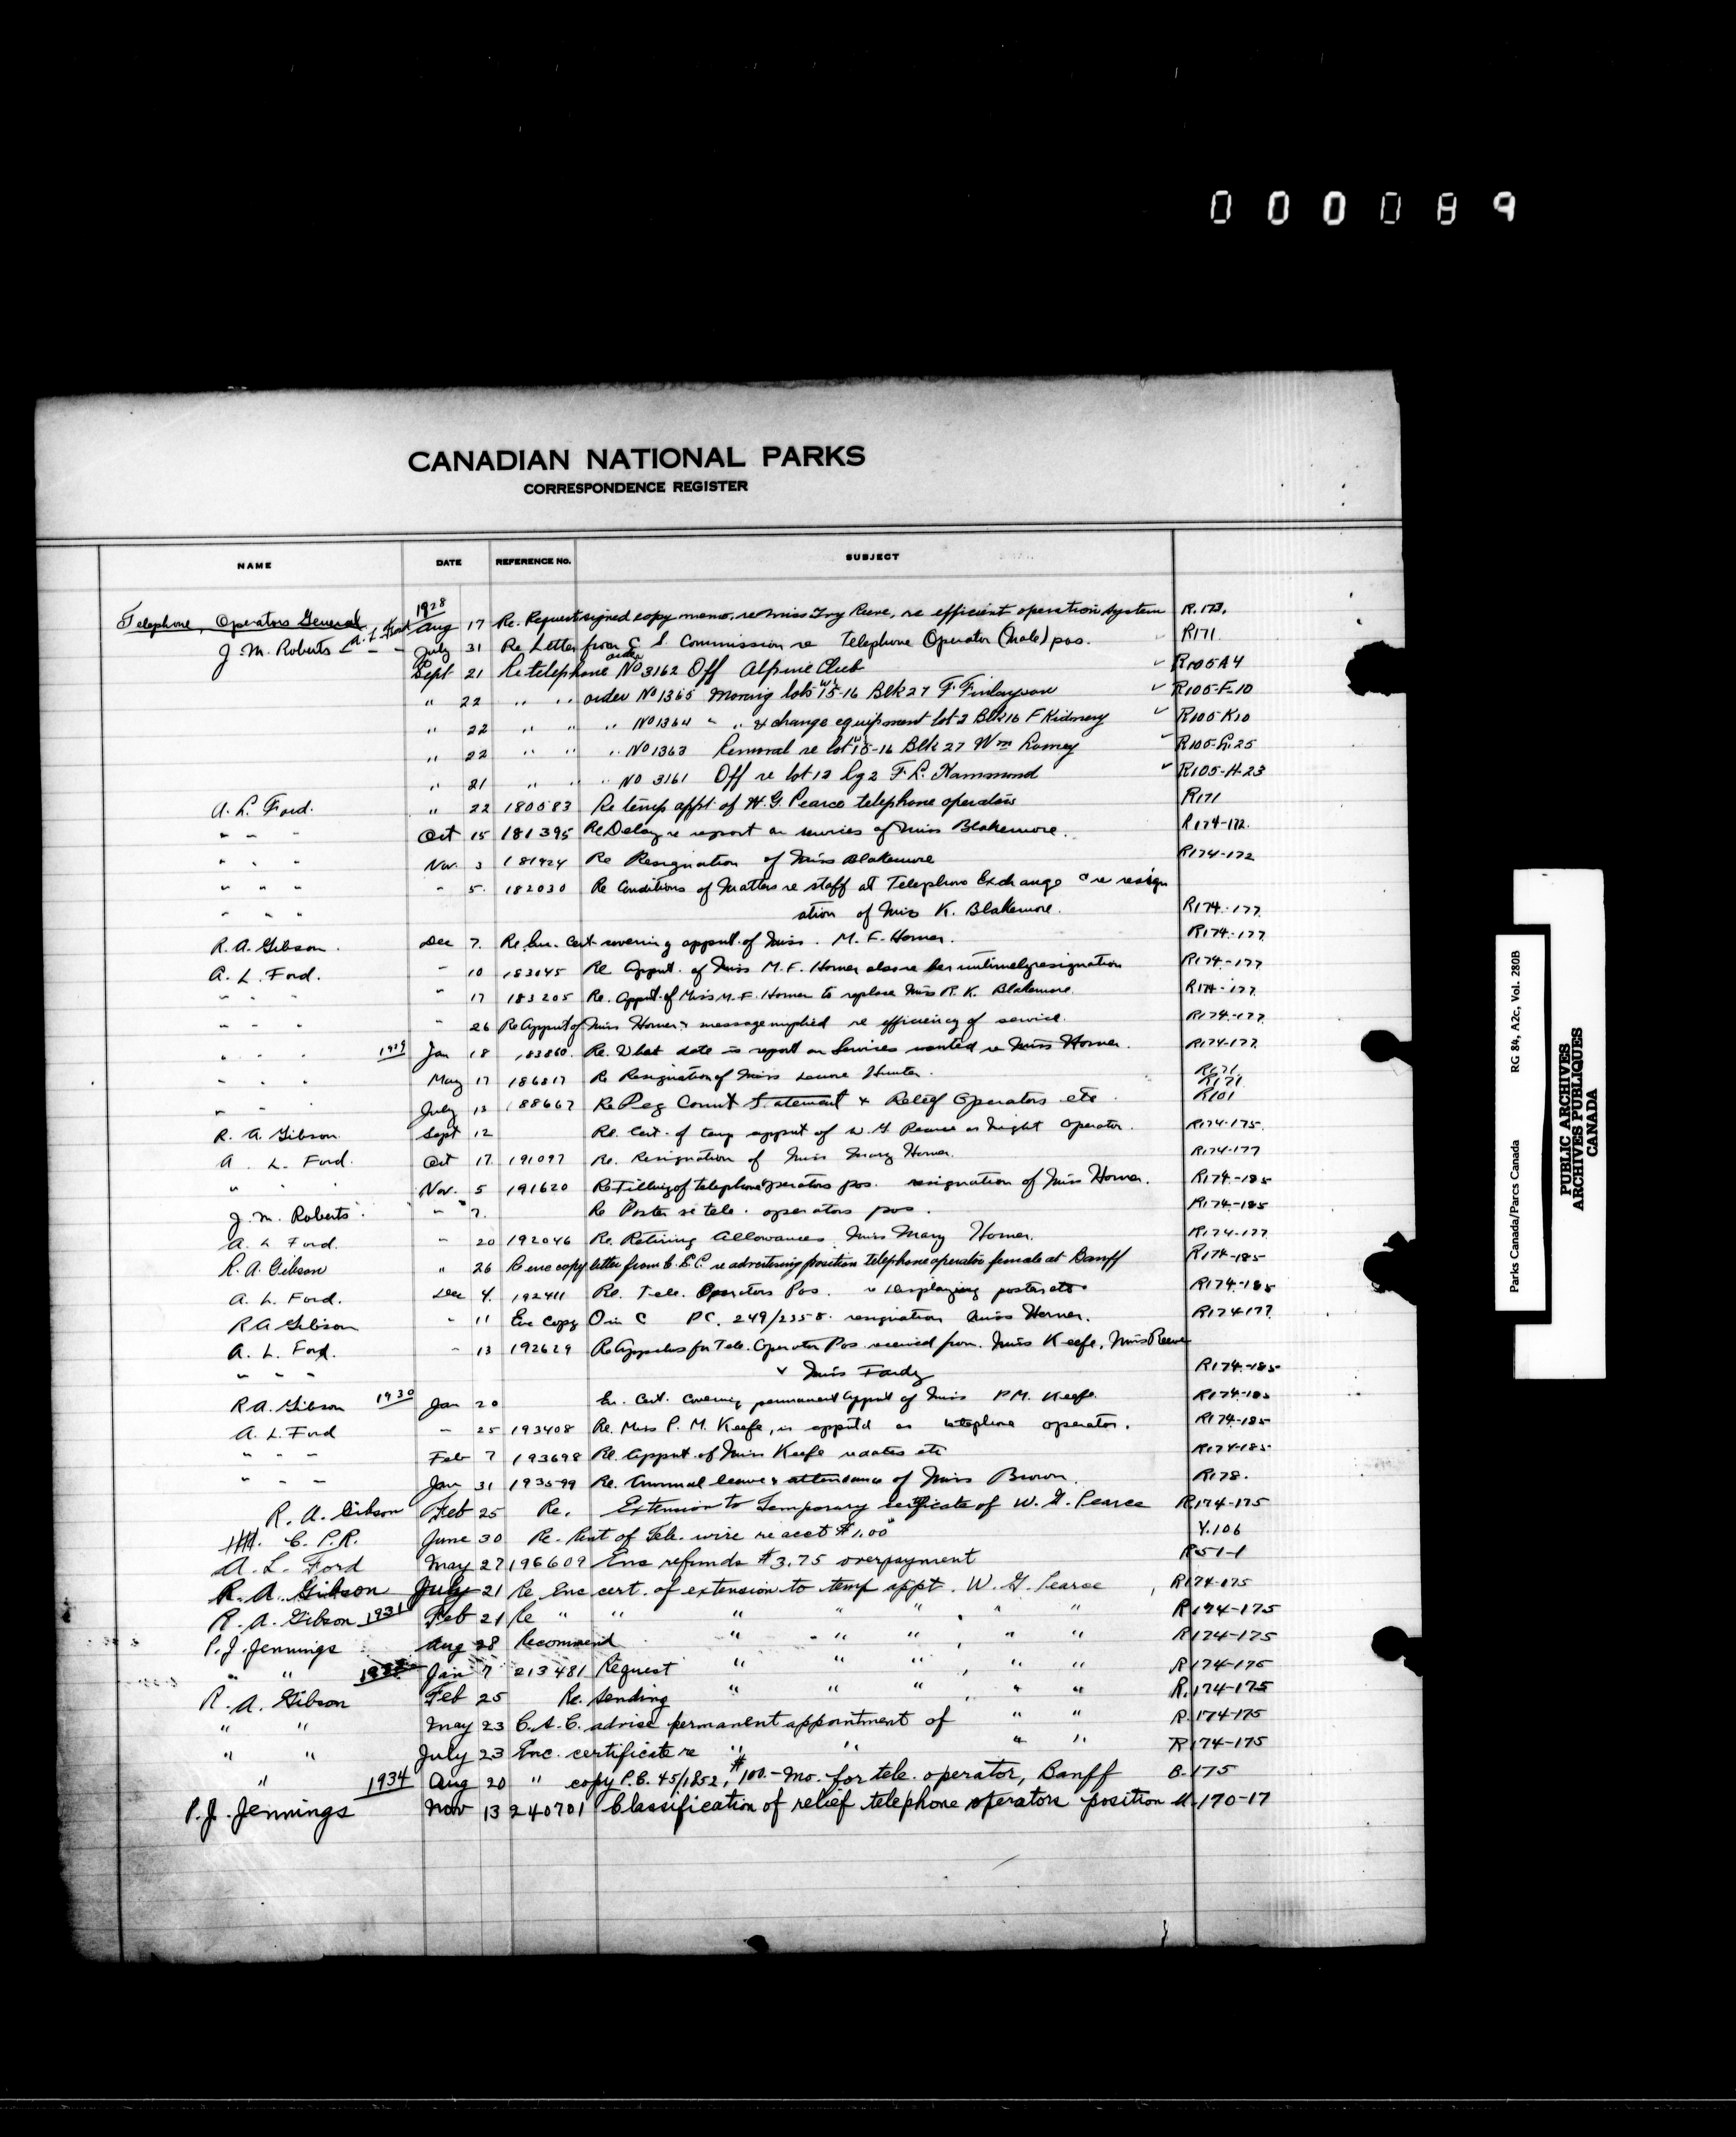 000089
CANADIAN NATIONAL PARKS
CORRESPONDENCE REGISTER
NAME DATE REFERENCE No. SUBJECT
1928
Telephone, Operators General A. L. Ford Aug 17 Re. Request signed copy memo. re Miss Ivy Reeve, re efficient operation system R.171.
J. M. Roberts - - - July 31 Re Letter from C S. Commission re Telephone Operator (Male) pos. R171.
Sept 21 Re telephone order No 3162 Off Alpine Club ✓ R105A4
" 22 " " order No 1365 Moving lots 15-16 Blk 27 F. Finlayson ✓ R105-F-10
" 22 " " " No 1364 " " & change equipment lot 2 Blk 16 F Kidney ✓ R105-K10
" 22 " " " No 1363 Removal re lot 15-16 Blk 27 Wm Ramey ✓ R105-R.25
" 21 " " " No 3161 Off re lot 12 Lg 2 F. L. Hammond ✓ R105-H-23
A. L. Ford. " 22 180583 Re temp appt. of W. G. Pearce telephone operator R171
" " " Oct 15 181395 Re Delay re report on services of Miss Blakemore. R174-172.
" " " Nov. 3 181924 Re Resignation of Miss Blakemore R174-172
" " " " 5. 182030 Re Conditions of Matters re staff at Telephone Exchange & re resign
" " " ation of Miss K. Blakemore. R174.-177
R. A. Gibson. Dec 7. Re Enc. Cert covering apput. of Miss. M. F. Horner. R174.-177
A. L. Ford. " 10 183045 Re Apput. of Miss M. F. Horner also re her untimely resignation R174.-177
" " " " 17 183205 Re. Apput. of Miss M. F. Horner to replace Miss R. K. Blakemore. R174-177
" " " " 26 Re Apput of Miss Horner & message re efficiency of service. R174.-177
" " " 1929 Jan 18 183860. Re. What date is report on Services wanted re Miss Horner. R174-177
" " " May 17 186817 Re Resignation of Miss Hunter. R171
R171
" " " July 13 188667 Re Peg Count Statement & Relief Operators etc. R101
R. A. Gibson. Sept 12 Re. Cert. of temp apput of W. G Pearce as Night Operator. R174-175.
A. L. Ford. Oct 17. 191097 Re. Resignation of Miss Mary Horner. R174-177
" " Nov. 5 191620 Re Filling of telephone operators pos. resignation of Miss Horner. R174.-185
J. M. Roberts. " 7. Re Poster re tele. operators pos. R174-185
A. L Ford. " 20 192046 Re. Retiring Allowances Miss Mary Horner. R174-177
R. A. Gibson " 26 Re enc copy letter from C.S.C. re advertising position telephone operator female at Banff R174-185
A. L. Ford. Dec 4. 192411 Re. Tele. Operators Pos. re displaying posters etc R174.-185
R A Gibson " 11 Enc Copy O in C P.C. 249/2358. resignation Miss Horner. R174-177.
A. L. Ford. " 13 192629 Re applcts for Tele. Operator Pos. received from Miss Keefe, Miss Reeve
" " " & Miss Fardy R174.-185
R A. Gibson 1930 Jan 20 En. Cert. Covering permanent apput of Miss P.M. Keefe. R174-185
A. L. Ford " 25 193408 Re. Miss P. M. Keefe, is apputd as telephone operator. R174-185
" " " Feb 7 193698 Re. apput. of Miss Keefe re dates etc R174-185
" " " Jan 31 193599 Re. Annual leave & attendance of Miss Brown. R178.
R. A. Gibson Feb 25 Re. Extension to Temporary certificate of W. G. Pearce R174-175
C. P. R. June 30 Re. Rent of Tele. wire re acct $1.00 Y.106
A. L. Ford May 27 196609 Enc refunds $3.75 overpayment R51-1
R. A. Gibson July 21 Re Enc cert. of extension to temp appt. W. G. Pearce, R174-175
R. A. Gibson 1931 Feb 21 Re " " " " " " " " R.174-175
P. J. Jennings Aug 28 Recommend " " " , " " R174-175
" " 1932 Jan 7 213481 Request " " " , " " R174-175
R. A. Gibson Feb 25 Re. sending " " " , " " R.174-175
" " May 23 C.S.C. advise permanent appointment of " " R.174-175
" " July 23 Enc. certificate re " " " " R174-175
" 1934 Aug 20 " copy P.C. 45/1852, $100.- Mo. for tele. operator, Banff B.175
P. J. Jennings Nov 13 240701 Classification of relief telephone operators position U.170-17
Parks Canada/Parcs Canada RG 84, A2c, Vol. 280B
PUBLIC ARCHIVES
ARCHIVES PUBLIQUES
CANADA